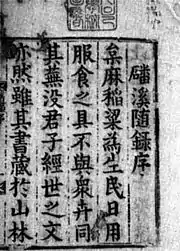 磻溪隨錄序
枲麻稻粱爲生民日用
服食之具不與衆卉同
其蕪没君子經世之文
亦然雖其書藏於山林